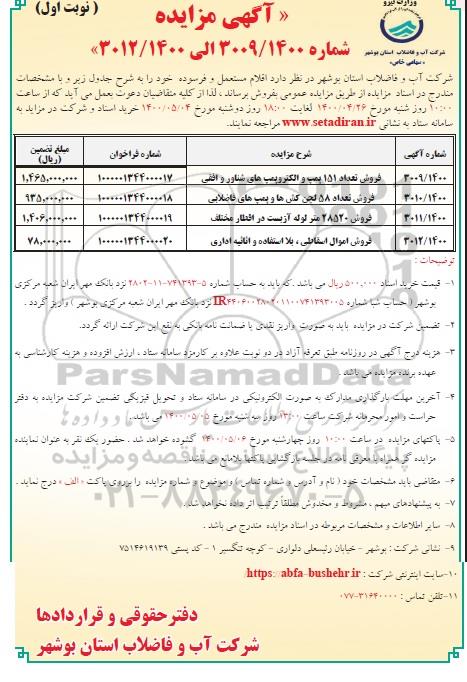 وزارت نیرو
شرکت آب و فاضلاب استان بوشهر
«سهامی خاص»
« آگهی مزایده
( نوبت اول )
شماره ۳۰۰۹/۱۴۰۰ الی ۳۰۱۲/۱۴۰۰»
شرکت آب و فاضلاب استان بوشهر در نظر دارد اقلام مستعمل و فرسوده خود را به شرح جدول زیر و با مشخصات
مندرج در اسناد مزایده از طریق مزایده عمومی بفروش برساند ، لذا از کلیه متقاضیان دعوت بعمل می آید که از ساعت
۱۰:۰۰ روز شنبه مورخ ۱۴۰۰/۰۴/۲۶ لغایت ۱۸:۰۰ روز دوشنبه مورخ ۱۴۰۰/۰۵/۰۴ خرید اسناد و شرکت در مزاید به
سامانه ستاد به نشانی www.setadiran.ir مراجعه نمایند.
شماره آگهی شرح مزایده شماره فراخوان مبلغ تضمین (ریال)
۳۰۰۹/۱۴۰۰ فروش تعداد ۱۵۱ پمپ و الکتروپمپ های شناور و افقی ۱۰۰۰۰۰۱۳۴۴۰۰۰۰۱۷ ۱,۴۶۵,۰۰۰,۰۰۰
۳۰۱۰/۱۴۰۰ فروش تعداد ۵۸ لجن کش ها و پمپ های فاضلابی ۱۰۰۰۰۰۱۳۴۴۰۰۰۰۱۸ ۹۳۵,۰۰۰,۰۰۰
۳۰۱۱/۱۴۰۰ فروش ۲۸۵۲۰ متر لوله آزبست در اقطار مختلف ۱۰۰۰۰۰۱۳۴۴۰۰۰۰۱۹ ۱,۴۰۶,۰۰۰,۰۰۰
۳۰۱۲/۱۴۰۰ فروش اموال اسقاطی ، بلا استفاده و اثاثیه اداری ۱۰۰۰۰۰۱۳۴۴۰۰۰۰۲۰ ۷۸,۰۰۰,۰۰۰
توضیحات :
۱- قیمت خرید اسناد ۵۰۰,۰۰۰ ریال می باشد .که باید به حساب شماره ۵-۷۴۱۳۹۳-۱۱-۲۸۰۲ نزد بانک مهر ایران شعبه مرکزی
بوشهر ( حساب شبا شماره IR۴۴۰۶۰۰۲۸۰۲۰۱۱۰۰۷۴۱۳۹۳۰۰۵ نزد بانک مهر ایران شعبه مرکزی بوشهر ) واریز گردد .
۲- تضمین شرکت در مزایده باید به صورت واریز نقدی یا ضمانت نامه بانکی به نفع این شرکت ارائه گردد.
۳- هزینه درج آگهی در روزنامه طبق تعرفه آزاد در دو نوبت علاوه بر کارمزد سامانه ستاد ، ارزش افزوده و هزینه کارشناسی به
عهده برنده مزایده می باشد .
۴- آخرین مهلت بارگذاری مدارک به صورت الکترونیکی در سامانه ستاد و تحویل فیزیکی تضمین شرکت مزایده به دفتر
حراست و امور محرمانه شرکت ساعت ۱۳:۰۰ روز سه شنبه مورخ ۱۴۰۰/۰۵/۰۵ می باشد .
۵- پاکتهای مزایده در ساعت ۱۰:۰۰ روز چهارشنبه مورخ ۱۴۰۰/۰۵/۰۶ گشوده خواهد شد . حضور یک نفر به عنوان نماینده
مزایده گر همراه با معرفی نامه در جلسه بازگشایی پاکتها بلامانع می باشد.
۶- متقاضی باید مشخصات خود ( نام و آدرس و شماره تماس ) و موضوع و شماره مزایده را برروی پاکت «الف » درج نماید .
۷- به پیشنهادهای مبهم ، مشروط و مخدوش مطلقاً ترتیب اثر داده نخواهد شد .
۸- سایر اطلاعات و مشخصات مربوطه در اسناد مزایده مندرج می باشد .
۹- نشانی شرکت : بوشهر - خیابان رئیسعلی دلواری - کوچه تنگسیر ۱ - کد پستی ۷۵۱۴۶۱۹۱۳۹
۱۰-سایت اینترنتی شرکت : https://abfa-bushehr.ir/
۱۱-تلفن تماس : ۳۱۶۴۰۰۰۰-۰۷۷
دفترحقوقی و قراردادها
شرکت آب و فاضلاب استان بوشهر
ParsNamadData
۰۲۱-۸۸۳۴۹۶۷۰-۵